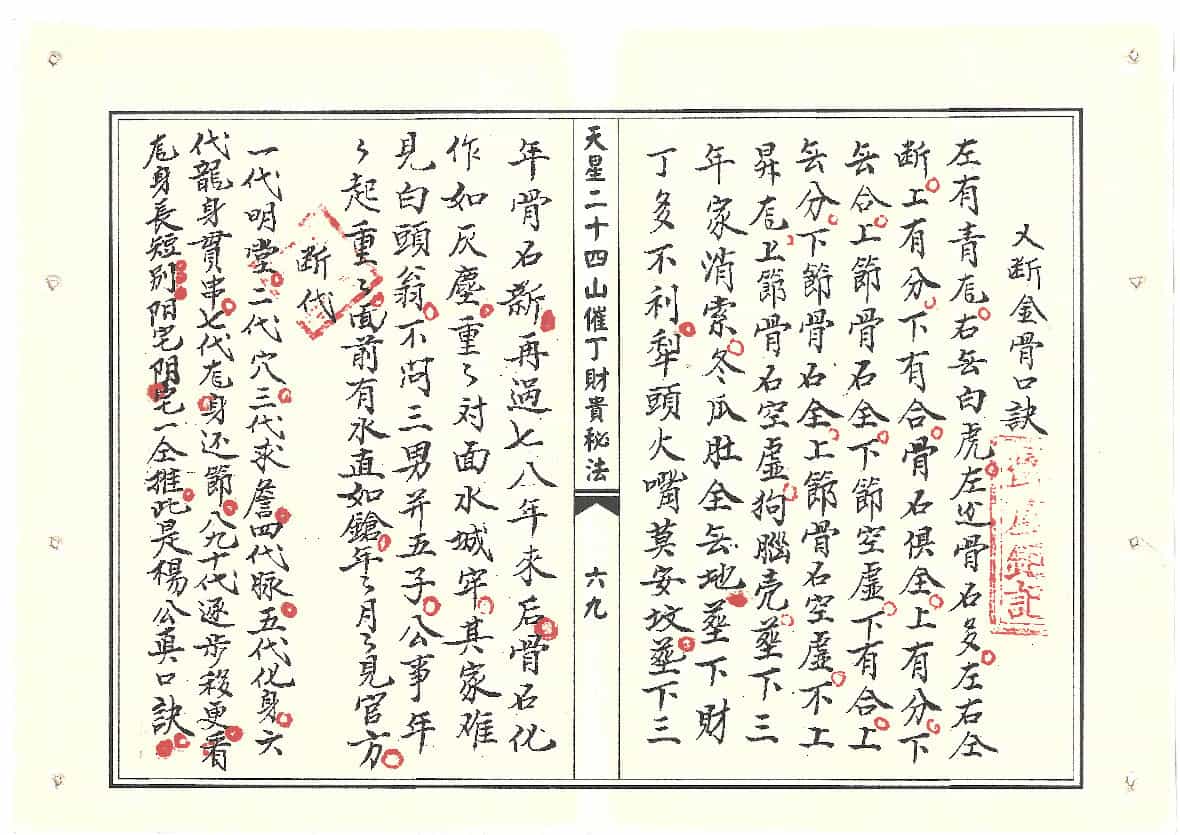 又断金骨口訣
左有青龙右無白虎左边骨石多左右仝
断上有分下有合骨石俱全上有分下
無合上節骨石全下節空虚下有合上
無分下節骨石全上節骨石空虚不上
昇龙上節骨石空虚狗腦壳葬下三
年家消索冬瓜肚全無地葬下財
丁多不利犁頭火嘴莫安坟葬下三
天星二十四山催丁財貴秘法
六九
年骨石新再過七八年來后骨石化
作如灰塵重々对面水城牢其家难
見白頭翁不問三男并五子公事年
々起重々面前有水直如鎗年々月々見官方
断代
一代明堂二代穴三代求詹四代脉五代化身六
代龍身貫串七代龙身还節八九十代逐步移更看
龙身長短別阳宅阴宅一仝推此是楊公真口訣